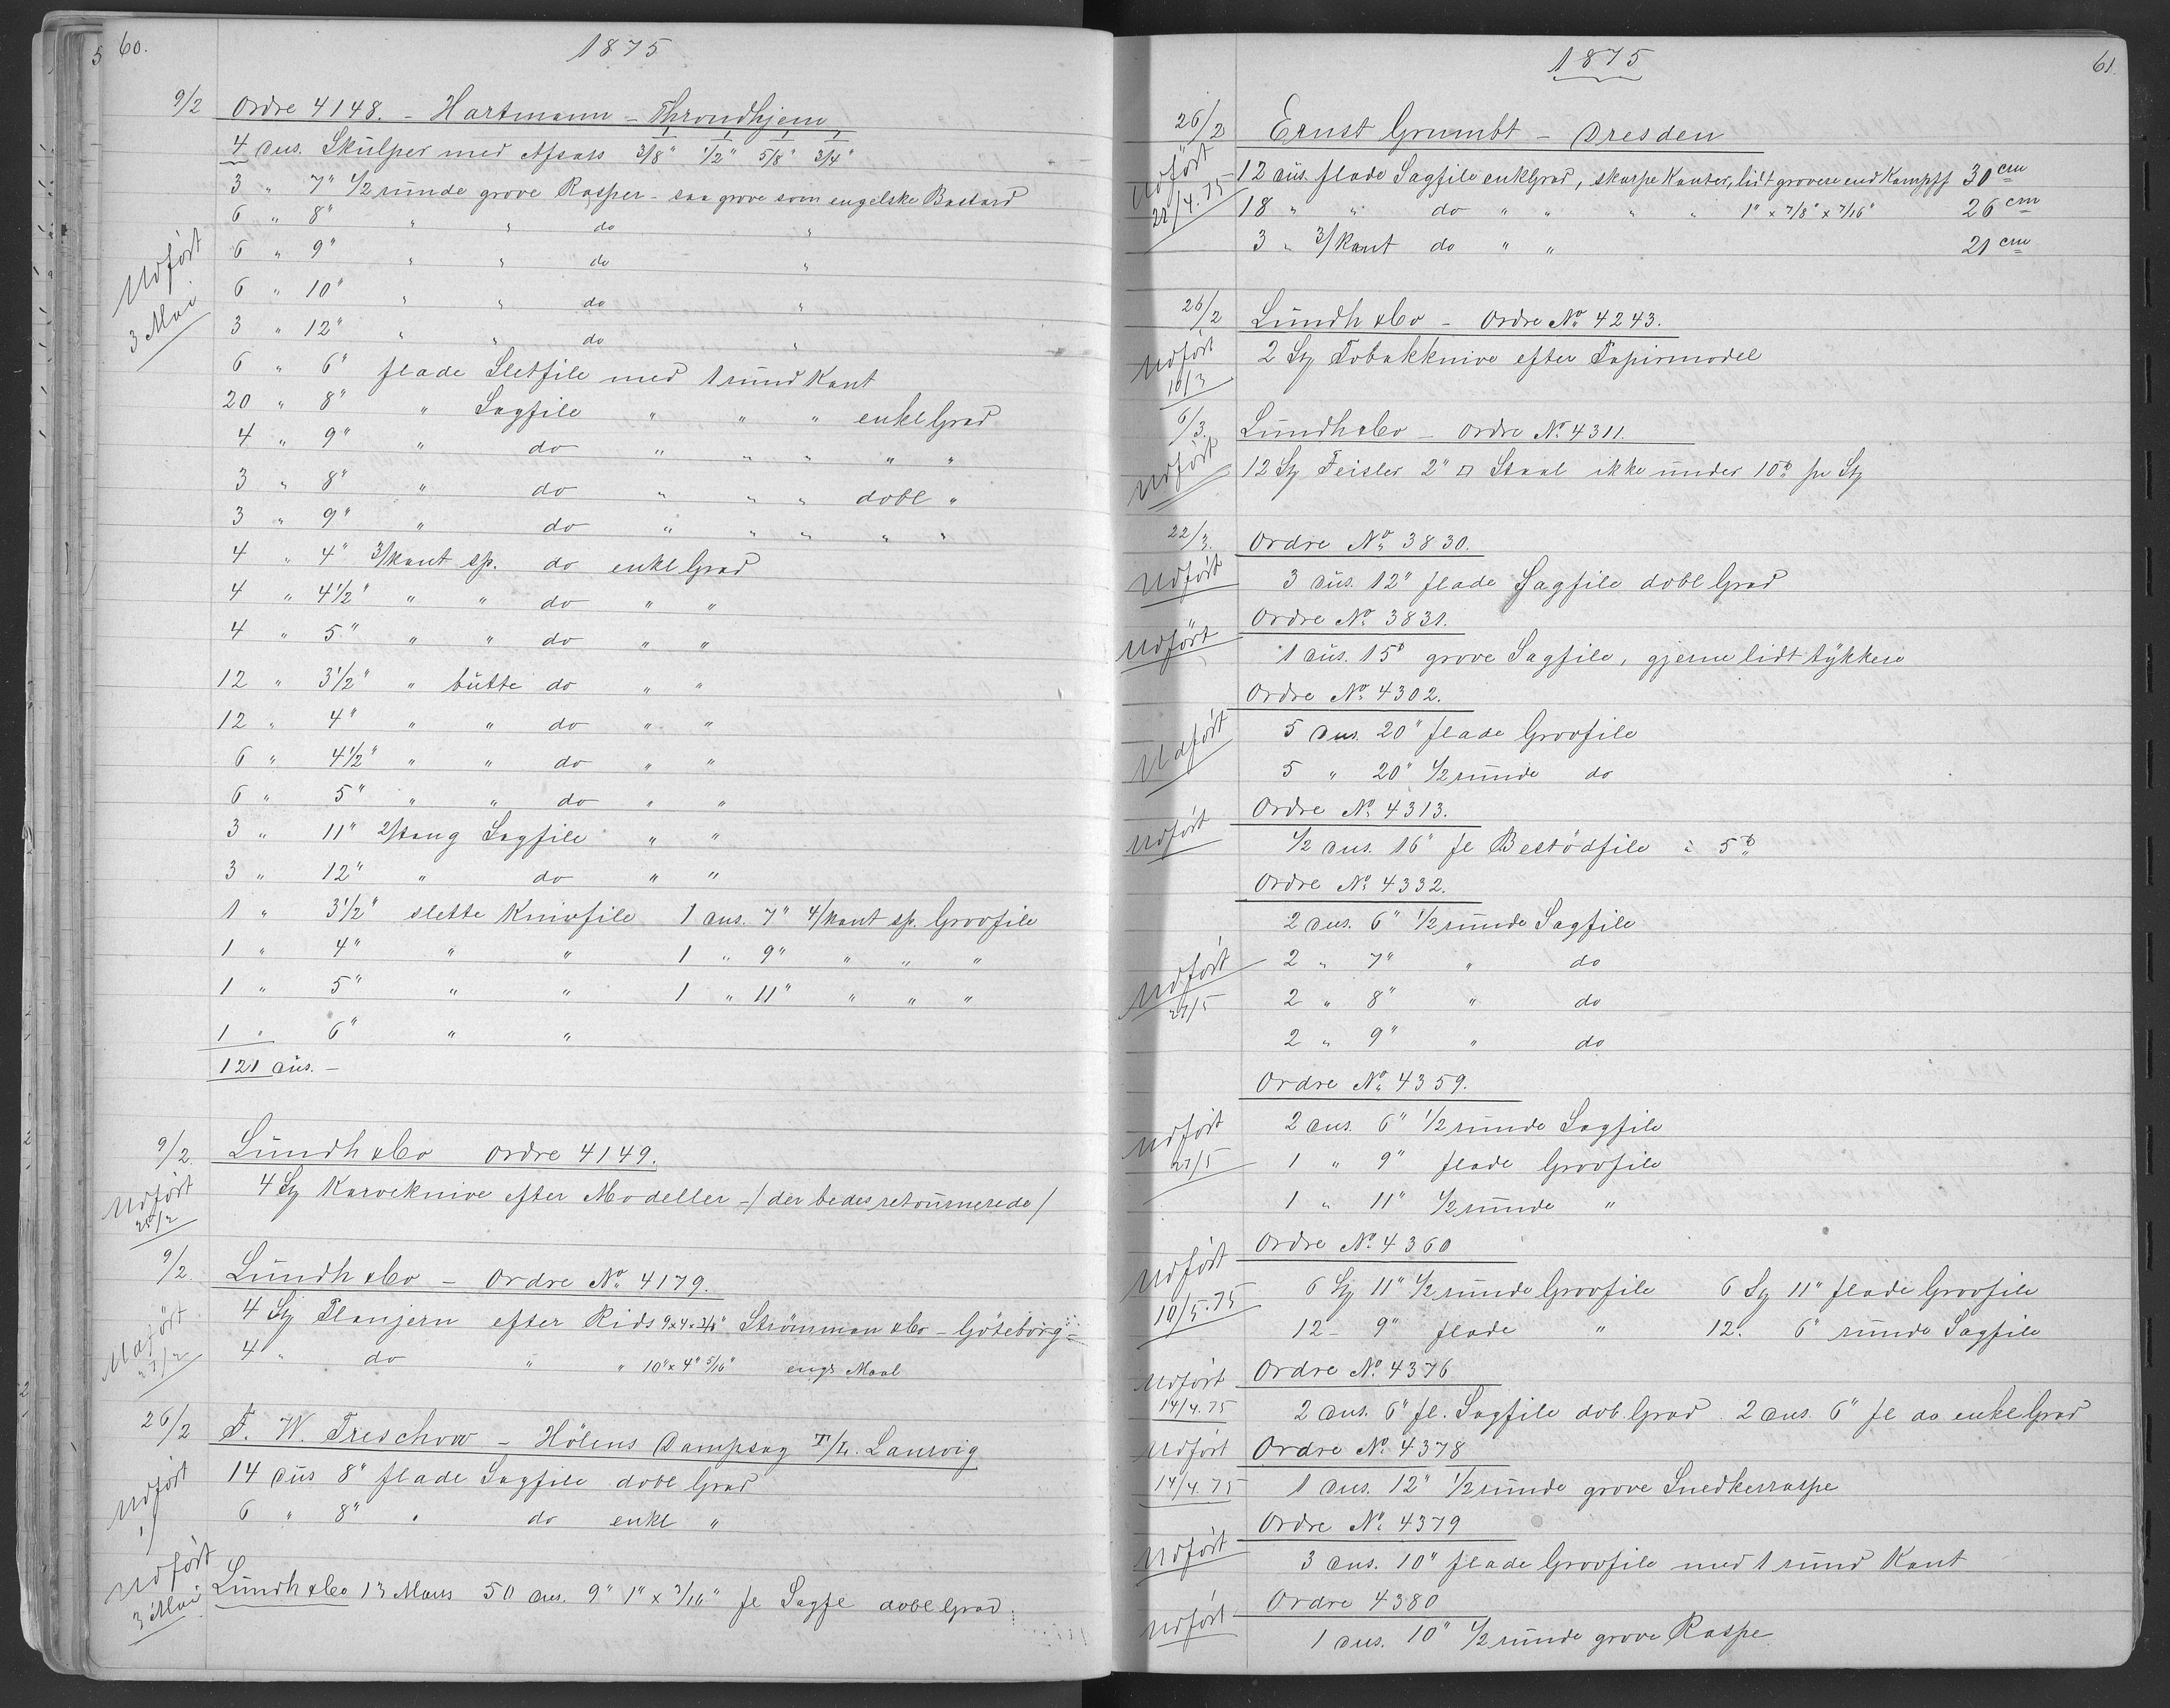 60.
1875
9/2 Ordre 4148. - Hartmann - Throndhjem
4 dus. Skülper med Afsats 3/8" 1/2" 5/8" 3/4"
3 " 7" 1/2 ründe grove Rasper - saa grove som engelske Bastard
6 " 8" " " do "
6 " 9" " " do "
Udført 3 Mai
6 " 10" " " do "
3 " 12" " " do "
6 " 6" flade Sletfile med 1 ründ Kant
20 " 8" " Sagfile " " " enkl Grad
4 " 9" " do " " " " "
3 " 8" " do " " " dobl "
3 " 9" " do " " " " "
4 " 4" 3/kant sp. do enkl Grad
4 " 4 1/2" " " do " "
4 " 5" " " do " "
12 " 3 1/2" " bütte do " "
12 " 4" " " do " "
6 " 4 1/2" " " do " "
6 " 5" " " do " "
3 " 11" 2/tang Sagfile " "
3 " 12" " do " "
1 " 3 1/2" slette Knivfile 1 dus. 7" 4/kant sp. Grovfile
1 " 4" " " 1 " 9" " " "
1 " 5" " " 1 " 11" " " "
1 " 6" " "
121 düs. -
9/2 Lündh & Co Ordre 4149.
Udført 25/2 4 St Karveknive efter Modeller - / der bedes retoürnerede /
9/2 Lündh & Co - Ordre No 4179.
Udført 27/2 4 St Planjern efter Rids 9x4x3/8" Strömman & Co - Göteborg -
4 " do " " 10" x 4" 5/16" engs Maal
26/2 F. W. Treschow - Hölens Dampsag T/L. Laurvig
Udført 14 düs 8" flade Sagfile dobl Grad
6 " 8" " do enkl "
Udført 3 Mai Lündh & Co 13 Mars 50 dus. 9" 1" x 3/16" fl Sagfl dobl Grad
1875
61.
26/2 Ernst Grumbt - Dresden
Udført 22/4.75 12 düs. flade Sagfile enkl Grad, skarpe Kanter, lidt grovere end Kampff 30 cm
18 " " do " " " " 1" x 7/8" x 7/16" 26 cm
3 " 3/kant do " " 21 cm
26/2 Lündh & Co - Ordre No 4243.
Udført 10/3 2 St Tobakknive efter Papirmodel
6/3. Lündh & Co - Ordre No 4311.
Udført 12 St Feisler 2" □ Staal ikke ünder 10 ℔ pr St
22/3. Ordre No 3830.
Udført 3 düs. 12" flade Sagfile dobl Grad
Ordre No 3831.
Udført 1 düs. 15" grove Sagfile, gjerne lidt tykkere
Ordre No 4302.
Udført 5 dus. 20" flade Grovfile
5 " 20" 1/2 ründe do
Ordre No 4313.
Udført 1/2 dus. 16" fl Bestödfile à 5 ℔
Ordre No 4332.
2 dus. 6" 1/2 ründe Sagfile
Udført 27/5 2 " 7" " do
2 " 8" " do
2 " 9" " do
Ordre No 4359.
Udført 27/5 2 dus. 6" 1/2 runde Sagfile
1 " 9" flade Grovfile
1 " 11" 1/2 ründe "
Ordre No 4360
Udført 10/5.75 6 St 11" 1/2 ründe Grovfile 6 St 11" flade Grovfile
12 - 9" flade " 12. 6" runde Sagfile
Udført 14/4.75 Ordre No 4376
2 dus. 6" fl. Sagfile dob. Grad. 2 dus. 6" fl do enkel Grad
Udført 14/4.75 Ordre No 4378
1 dus. 12" 1/2 ründe grove Snedkerraspe
Ordre No 4379
Udført 3 dus. 10" flade Grovfile med 1 ründ Kant
Ordre 4380
Udført 1 dus. 10" 1/2 ründe grove Raspe